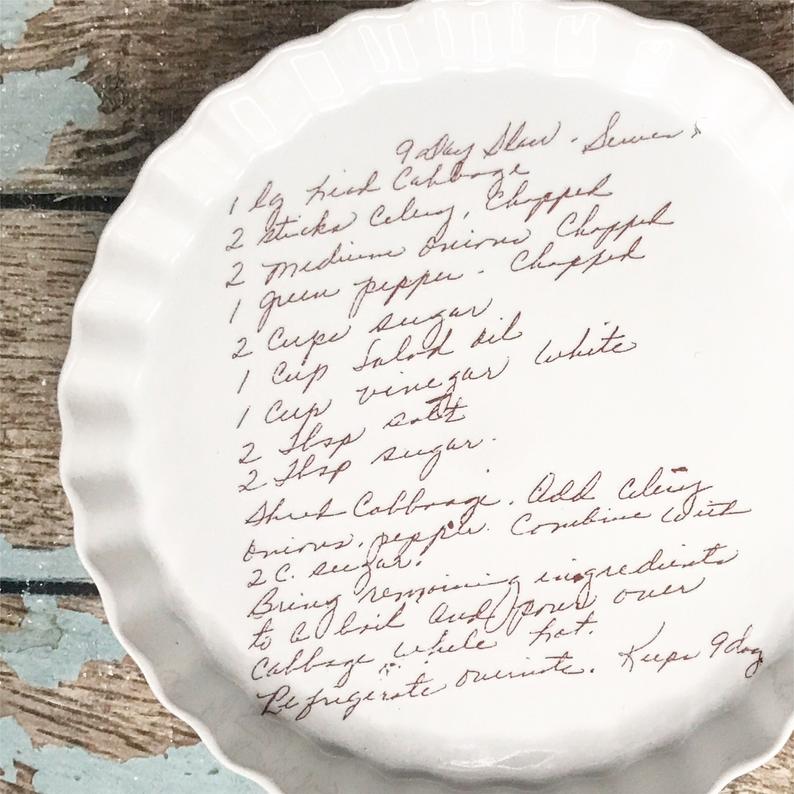 9 Day Slaw - Serves
1 lg head Cabbage
2 sticks Celery, Chopped
2 medium onions Chopped
1 green pepper - Chopped
2 Cups sugar
1 Cup Salad oil
1 Cup vinegar white
2 Tbsp salt
2 Tbsp sugar.
Shred Cabbage. Add Celery
onions, pepper. Combine with
2 C. sugar.
Bring remaining ingredients
to a boil and pour over
Cabbage while hot.
Refrigerate overnite. Keeps 9 day